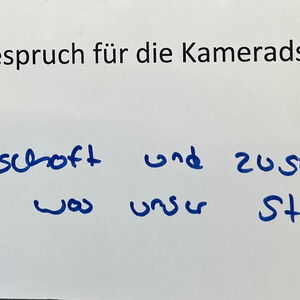 espruch für die Kamerads
schaft und zus
was unser St